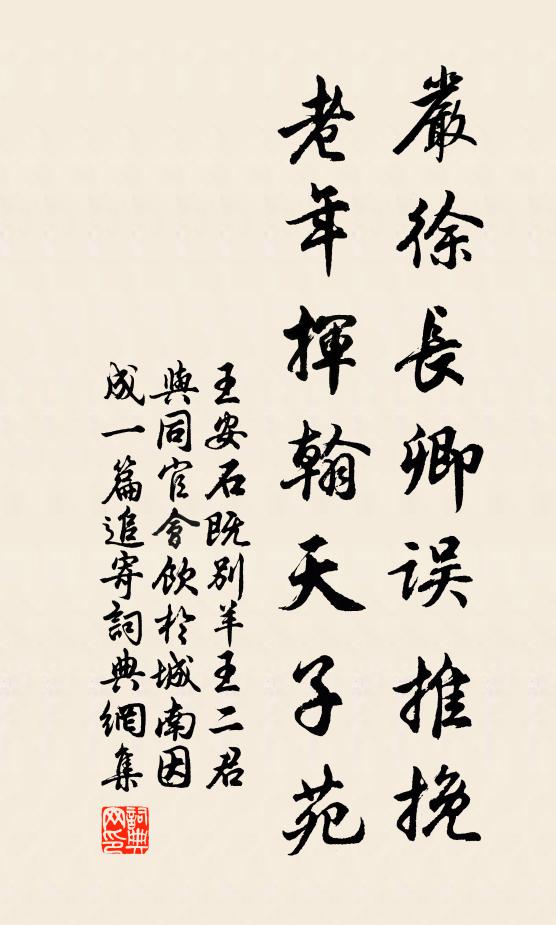 嚴徐長卿误推挽
老年揮翰天子苑
王安石既别羊王二君
與同官會飲於城南因
成一篇追寄詞典網集
詞典网印